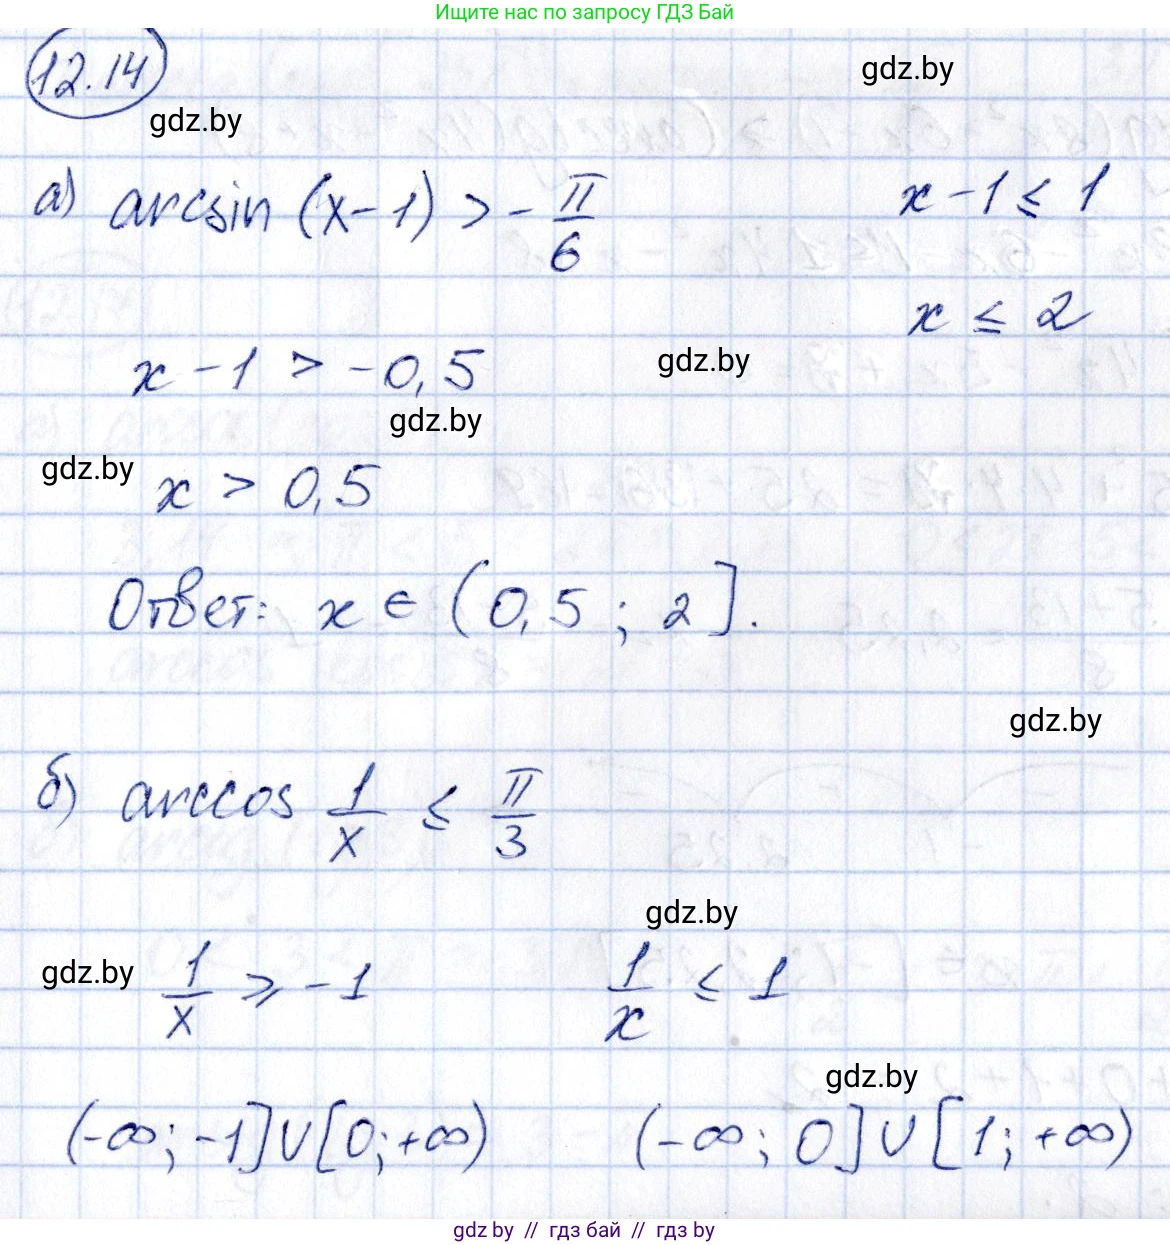 Ищите нас по запросу ГДЗ Бай
12.14
gdz.by
gdz.by
а) arcsin (x-1) > -π/6
x-1 ≤ 1
x ≤ 2
x-1 > -0,5
gdz.by
gdz.by
gdz.by
x > 0,5
Ответ: x ∈ (0,5 ; 2].
gdz.by
б) arccos 1/x ≤ π/3
gdz.by
gdz.by
1/x ⩾ -1
1/x ≤ 1
gdz.by
(-∞; -1]∪[0;+∞)
(-∞; 0]∪[1; +∞)
gdz.by // гдз бай // гдз by